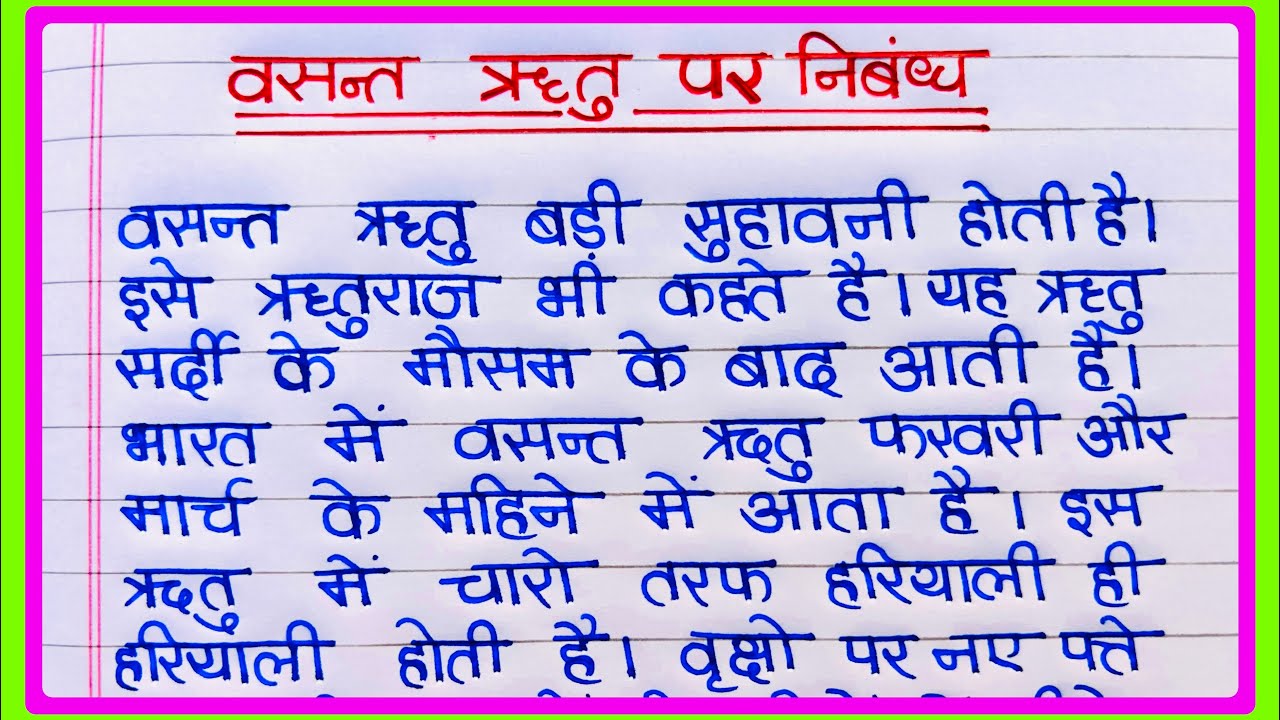 वसन्त ऋतु पर निबंध
वसन्त ऋतु बड़ी सुहावनी होती है।
इसे ऋतुराज भी कहते है। यह ऋतु
सर्दी के मौसम के बाद आती है।
भारत में वसन्त ऋतु फरवरी और
मार्च के महिने में आता है। इस
ऋतु में चारो तरफ हरियाली ही
हरियाली होती है। वृक्षो पर नए पत्ते